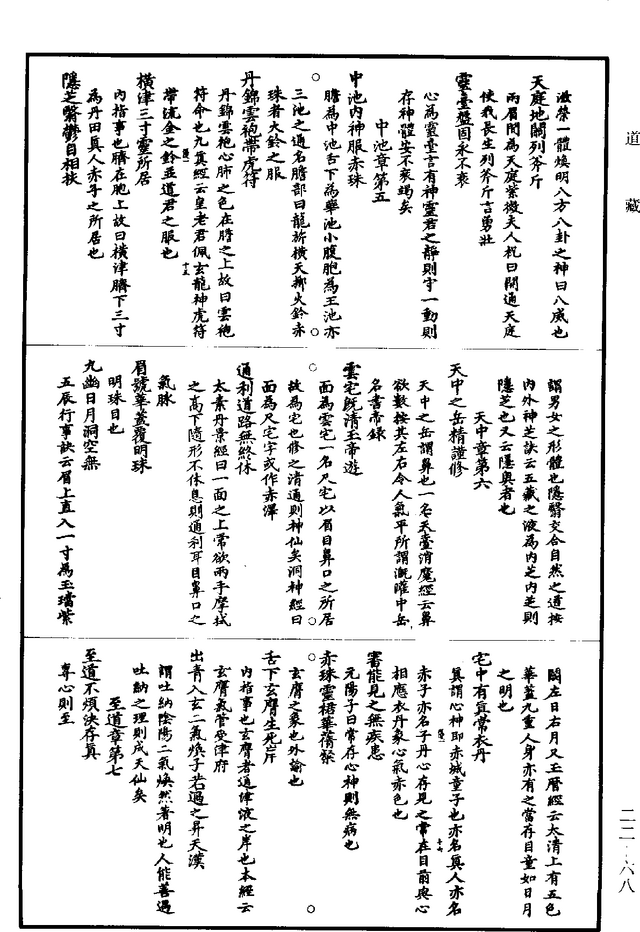 道藏
滋榮一體煥明八方八卦之神曰八威也
天庭地關列斧斤
兩眉間為天庭紫微夫人祝曰開通天庭
使我長生列斧斤言勇壯
靈臺盤固永不衰
心為靈臺言有神靈君之靜則守一動則
存神體安不衰竭矣
中池章第五
中池內神服赤珠
膽為中池舌下為華池小腹胞為玉池亦
三池之通名膽部曰龍旂橫天擲火鈴赤
珠者火鈴之服
丹錦雲袍帶虎符
丹錦雲袍心肺之色在膽之上故曰雲袍
符命也九真經云皇老君佩玄龍神虎符
帶流金之鈴並道君之服也
橫津三寸靈所居
內指事也臍在胞上故曰橫津臍下三寸
為丹田真人赤子之所居也
隱芝翳鬱自相扶
謂男女之形體也隱翳交合自然之道按
內外神芝訣云五藏之液為內芝內芝則
隱芝也又云隱奧者也
天中章第六
天中之岳精謹修
天中之岳謂鼻也一名天臺消魔經云鼻
欲數按其左右令人氣平所謂溉灌中岳
名書帝錄
雲宅既清玉帝遊
面為雲宅一名尺宅以眉目鼻口之所居
故為宅也修之清通則神仙矣洞神經曰
面為尺宅字或作赤澤
通利道路無終休
太素丹景經曰一面之上常欲兩手摩拭
之高下隨形不休息則通利耳目鼻口之
氣脉
眉號華蓋覆明珠
明珠目也
九幽日月洞空無
五辰行事訣云眉上直入一寸為玉璫紫
闕左日右月又玉曆經云太清上有五色
華蓋九重人身亦有之當存目童如日月
之明也
宅中有真常衣丹
真謂心神即赤城童子也亦名真人亦名
赤子亦名子丹心存見之常在目前與心
相應衣丹象心氣赤色也
審能見之無疾患
元陽子曰常存心神則無病也
赤珠靈裙華蒨粲
玄膺之象也外諭也
舌下玄膺生死岸
內指事也玄膺者通津液之岸也本經云
玄膺氣管受津府
出青入玄二氣煥子若遇之昇天漢
謂吐納陰陽二氣煥然著明也人能善遇
吐納之理則成天仙矣
至道章第七
至道不煩決存真
專心則至
二二·六八